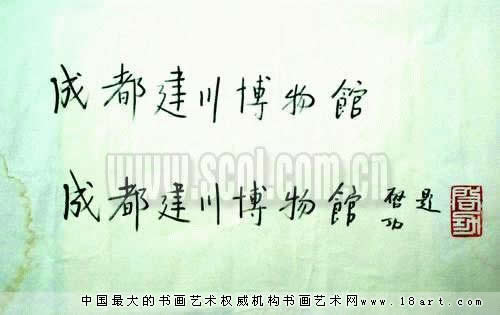 成都建川博物館
www.scol.com.cn
成都建川博物館 启功 题
启功
中国最大的书画艺术权威机构书画艺术网www.18art.com.